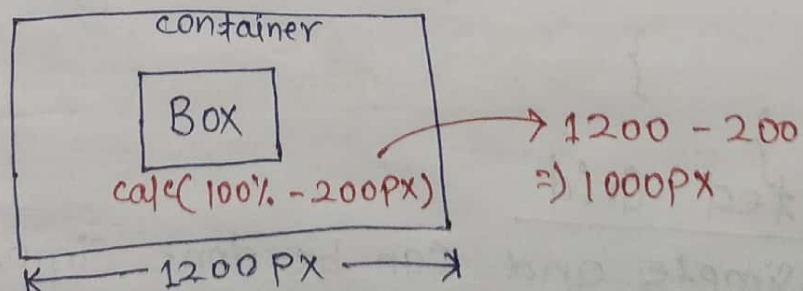 container
Box
calc(100% - 200PX)
→ 1200 - 200
=> 1000PX
1200 PX